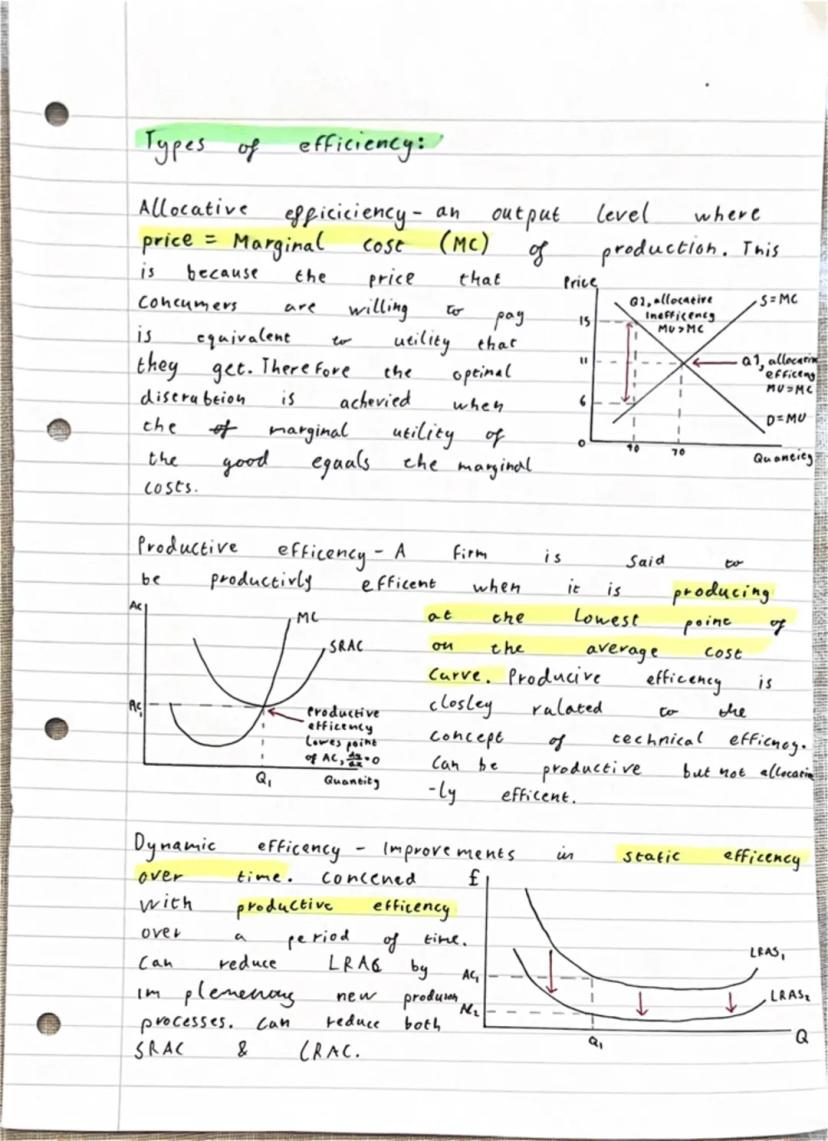 Types of efficiency:
Allocative efficiciency - an output level where
price = Marginal cost (MC) of production. This
is because the price that
concumers are willing to pay
is equivalent to utility that
they get. Therefore the optimal
discrabtion is achevied when
the of marginal utility of
the good equals the marginal
costs.
Price
Q2, allocative
inefficency
MU>MC
S=MC
15
11
6
0
Q1, allocative
efficency
MU=MC
D=MU
40
70
Quantity
Productive efficency - A firm is said to
be productivly efficent when it is producing
at the lowest point of
on the average cost
curve. Producive efficency is
closley ralated to the
concept of technical efficncy.
Can be productive but not allocative
-ly efficent.
AC
MC
SRAC
AC1
Productive
efficency
Lowes point
of AC, =0
Q1
Quantity
Dynamic efficency - Improvements in static efficency
over time. concened
with productive efficency
over a period of time.
Can reduce LRAC by
implemenong new producon
processes. Can reduce both
SRAC & LRAC.
£
AC1
AC2
LRAS1
LRAS2
Q1
Q